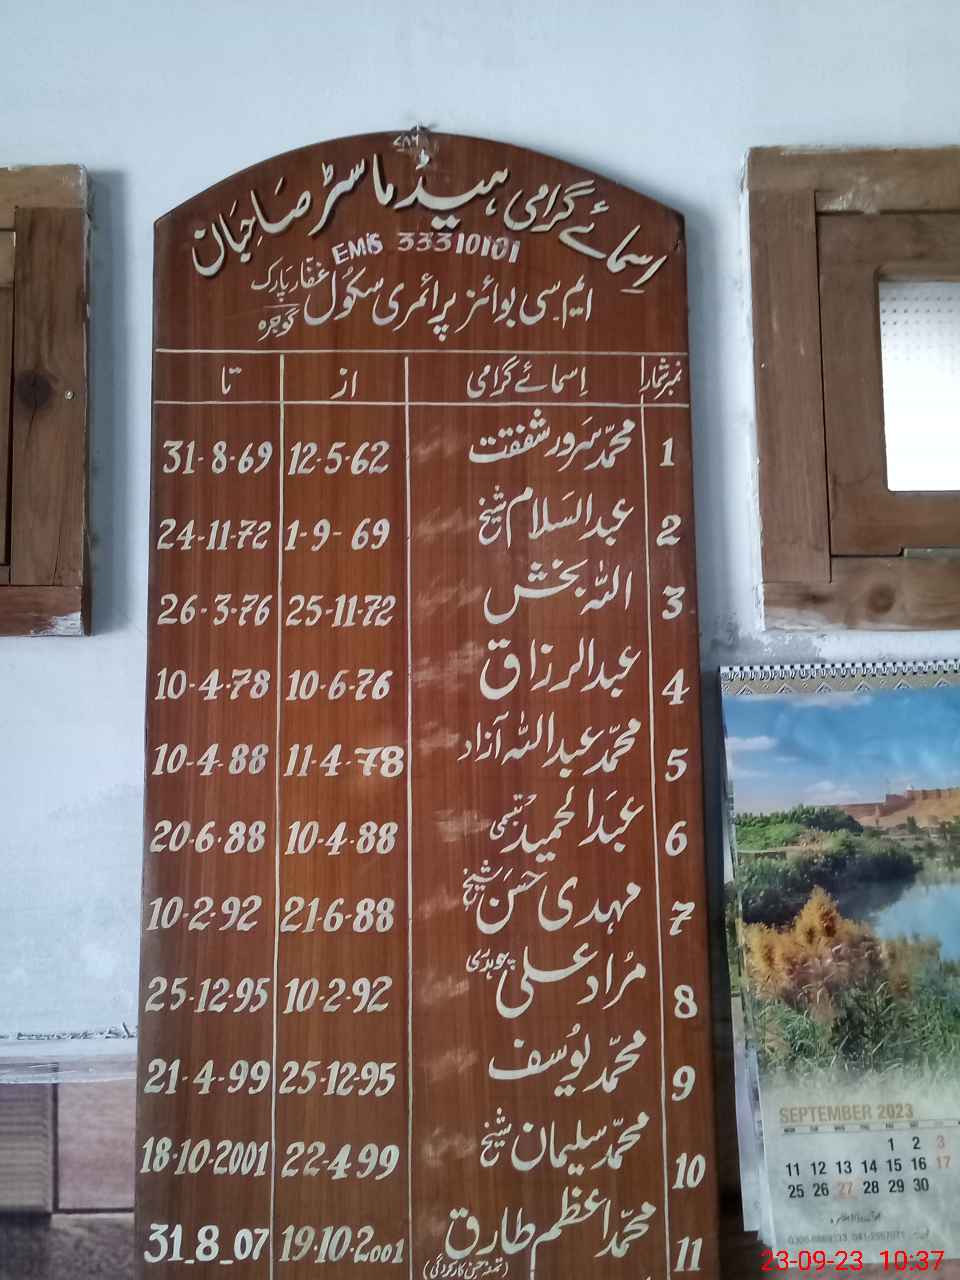 ۷۸۶
اسمائے گرامی ہیڈ ماسٹر صاحبان
EMIS 33310101
ایم۔سی بوائز پرائمری سکول غفار پارک گوجرہ
نمبر شمار اسمائے گرامی از تا
1 محمد سرور شفقت 12-5-62 31-8-69
2 عبدالسلام شیخ 1-9-69 24-11-72
3 اللہ بخش 25-11-72 26-3-76
4 عبدالرزاق 10-6-76 10-4-78
5 محمد عبداللہ آزاد 11-4-78 10-4-88
6 عبدالحمید 10-4-88 20-6-88
7 مہدی حسن شیخ 21-6-88 10-2-92
8 مراد علی چوہدری 10-2-92 25-12-95
9 محمد یوسف 25-12-95 21-4-99
10 محمد سلیمان شیخ 22-4-99 18-10-2001
11 محمد اعظم طارق 19-10-2001 31_8_07
(تمغہ حسن کارکردگی)
SEPTEMBER 2023
1 2 3
11 12 13 14 15 16 17
25 26 27 28 29 30
23-09-23 10:37